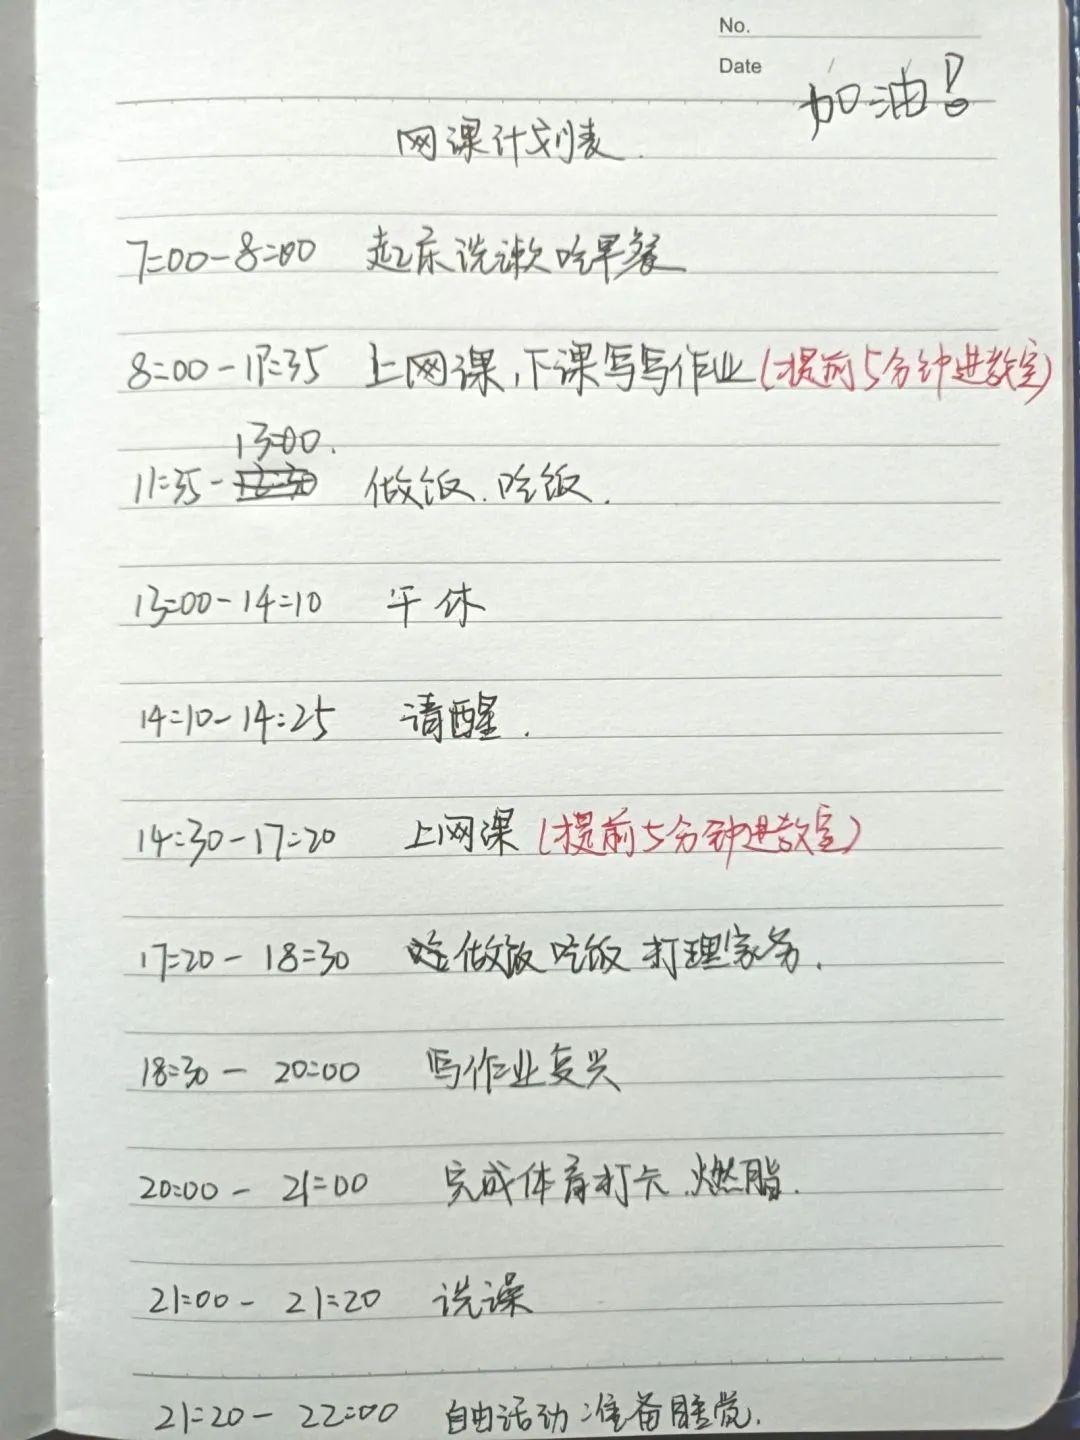 No.
Date / /
加油!
网课计划表.
7:00-8:00 起床洗漱吃早餐
8:00-11:35 上网课,下课写写作业(提前5分钟进教室)
13:00.
11:35- 做饭.吃饭.
13:00-14:10 午休
14:10-14:25 清醒.
14:30-17:20 上网课(提前5分钟进教室)
17:20-18:30 做饭吃饭打理家务.
18:30-20:00 写作业复兴
20:00-21:00 完成体育打卡.燃脂.
21:00-21:20 洗澡
21:20-22:00 自由活动 准备睡觉.